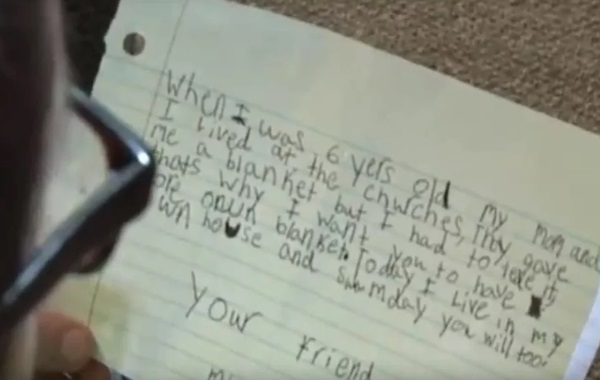 When I was 6 yers old my mom and
I lived at the churches, They gave
me a blanket but I had to leve it
thats why I want you to have
ore blanket, Today I Live in my
wn house and sumday you will too!
Your Friend